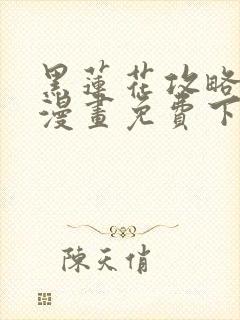 黑蓮花攻略
漫畫免費下
陳天俏